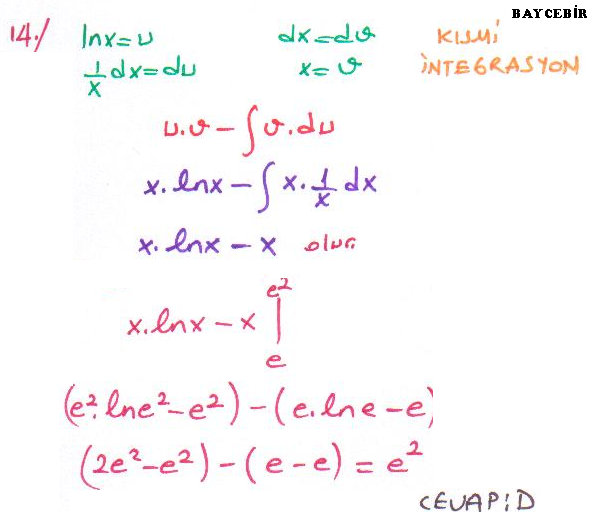 BAYCEBİR
14./ lnx=u dx=dv KISMİ
1/x dx=du x=v İNTEGRASYON
u.v-∫v.du
x.lnx-∫x.1/x dx
x.lnx-x olur.
x.lnx-x |_e^e²
(e².lne²-e²)-(e.lne-e)
(2e²-e²)-(e-e)=e²
CEVAP:D